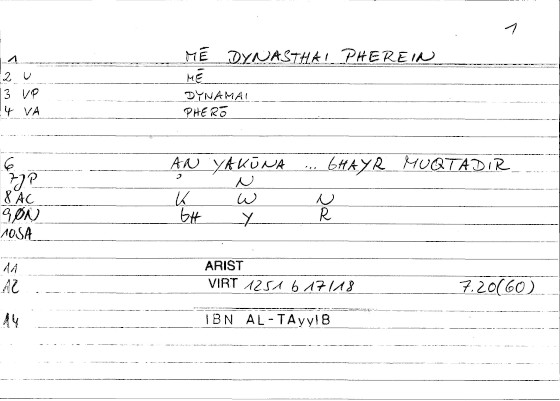 1
1 MĒ DYNASTHAI PHEREIN
2 U MĒ
3 VP DYNAMAI
4 VA PHERŌ
6 AN YAKŪNA ... GHAYR MUQTADIR
7JP ' N
8AC K W N
9ØN GH Y R
10SA
11 ARIST
12 VIRT 1251 b 17/18 7.20(60)
14 IBN AL-TAyyIB